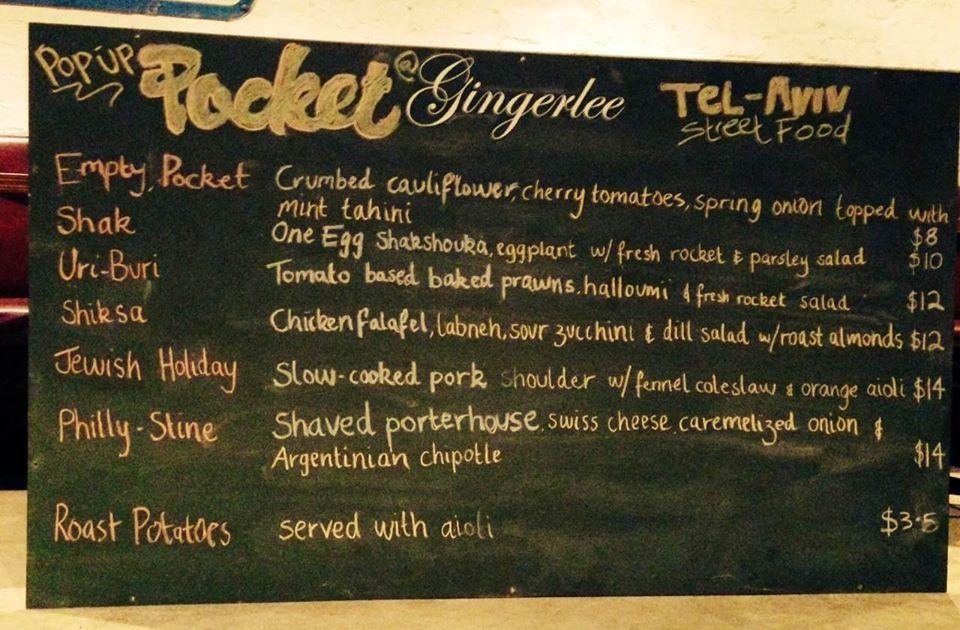 PopUp Pocket @ Gingerlee TEL-AVIV
Street Food
Empty Pocket Crumbed cauliflower, cherry tomatoes, spring onion topped with
mint tahini $8
Shak One Egg Shakshouka, eggplant w/ fresh rocket & parsley salad $10
Uri-Buri Tomato based baked prawns, halloumi & fresh rocket salad $12
Shiksa Chicken falafel, labneh, sour zucchini & dill salad w/roast almonds $12
Jewish Holiday Slow-cooked pork shoulder w/ fennel coleslaw & orange aioli $14
Philly-Stine Shaved porterhouse, swiss cheese, caremelized onion &
Argentinian chipotle $14
Roast Potatoes served with aioli $3.5